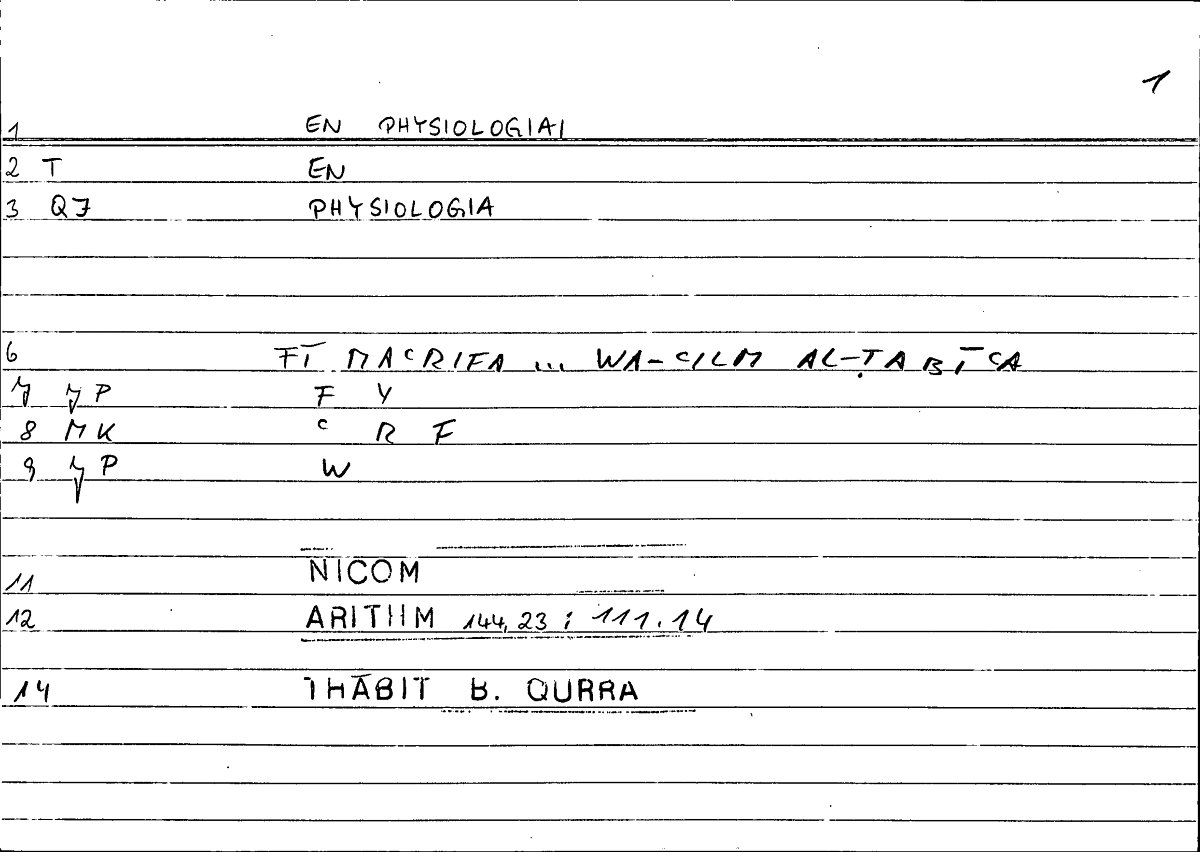 1
1 EN PHYSIOLOGIAI
2 T EN
3 QJ PHYSIOLOGIA
6 FĪ MAᶜRIFA ... WA-ᶜILM AL-ṬABĪᶜA
7 JP F Y
8 MK ᶜ R F
9 JP W
11 NICOM
12 ARITHM 144,23 : 111.14
14 THĀBIT B. QURRA